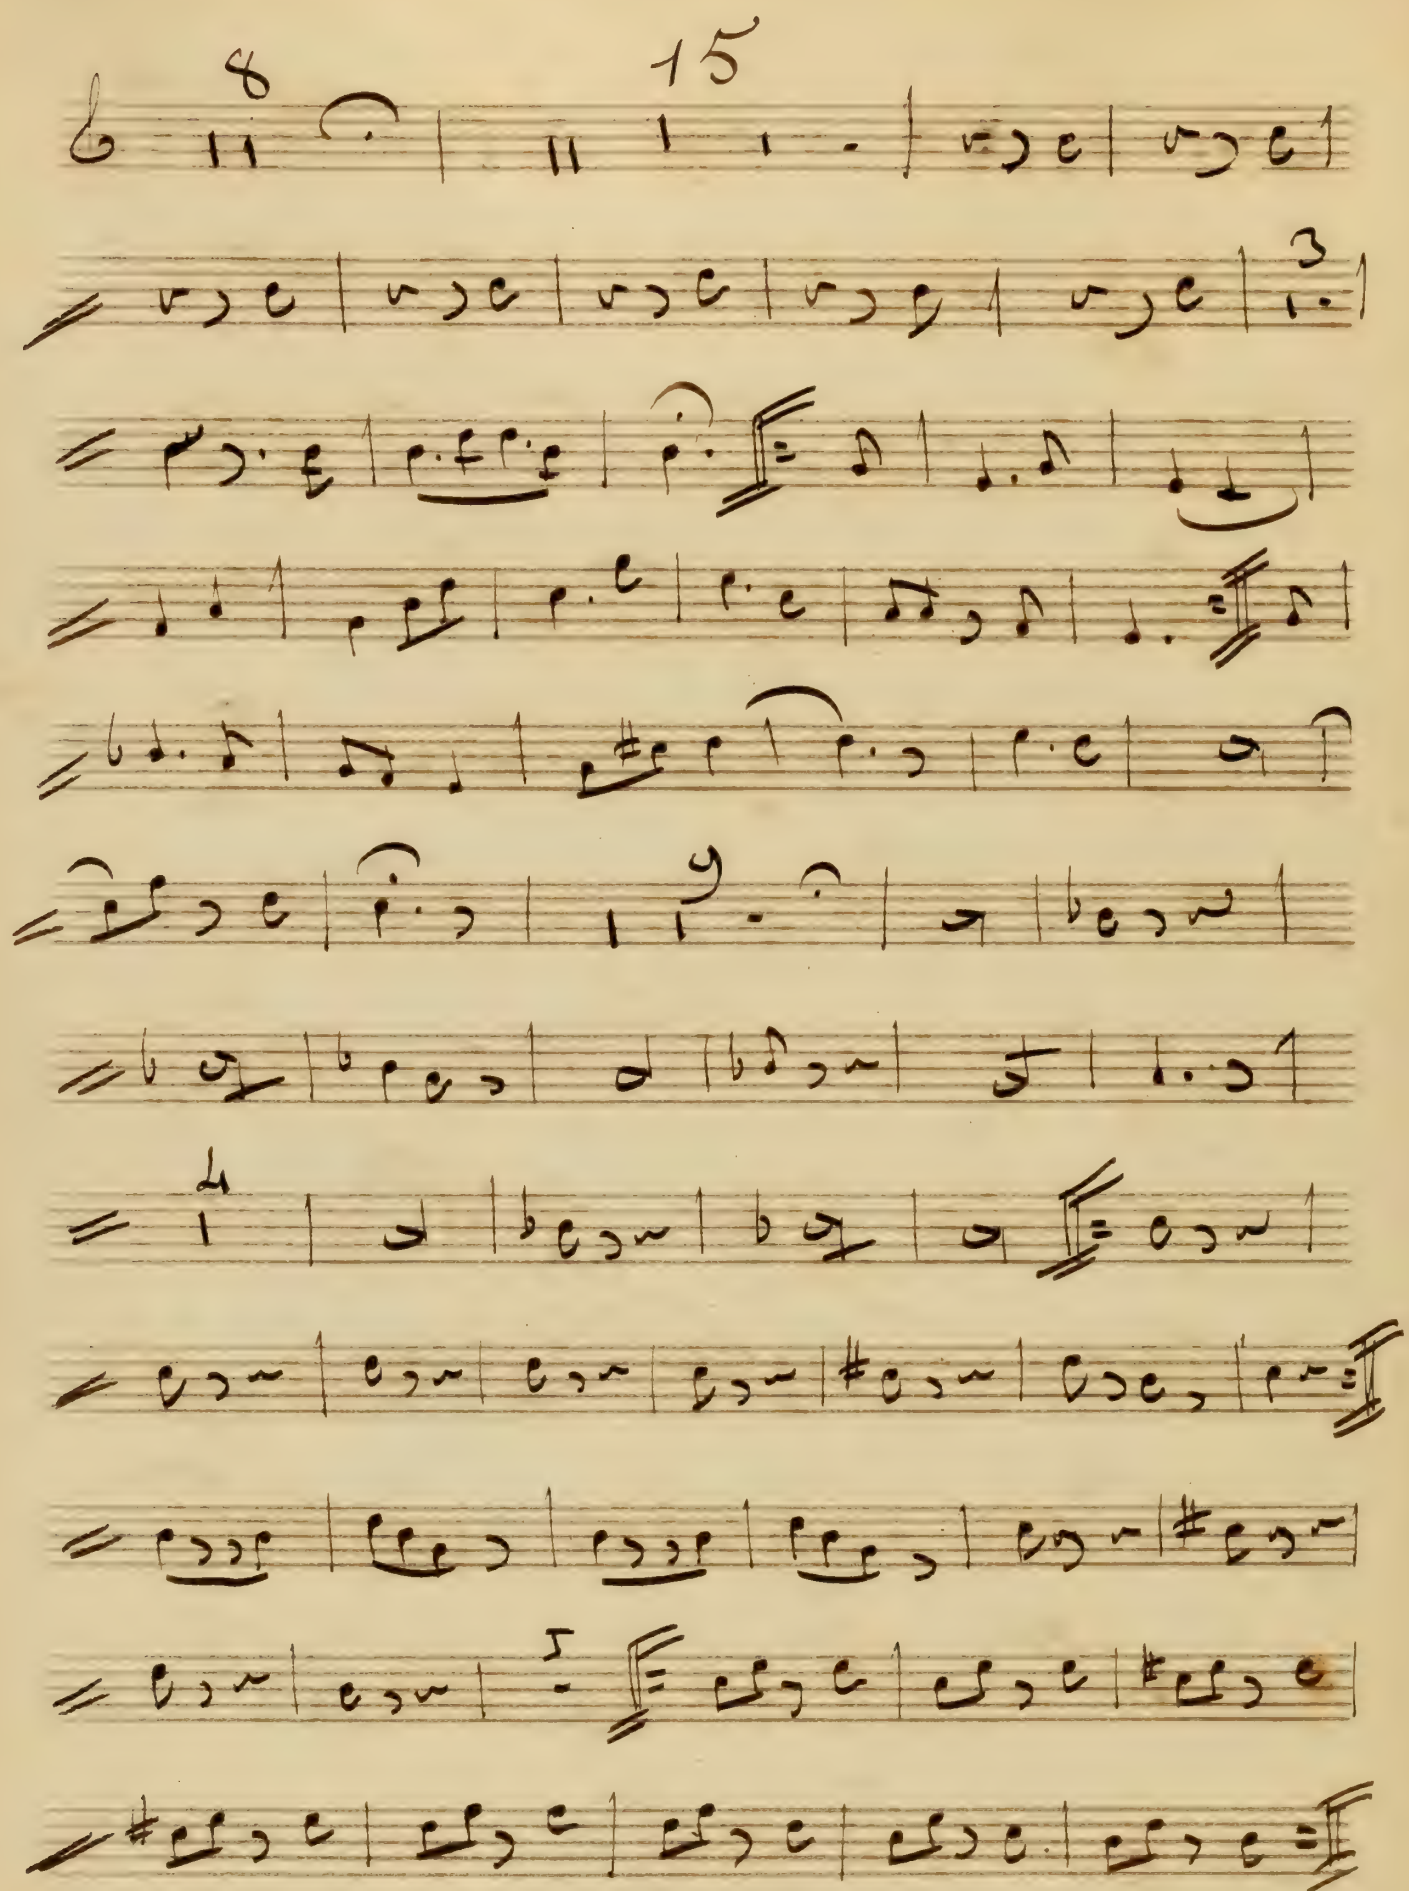 8 15
3
9
4
5